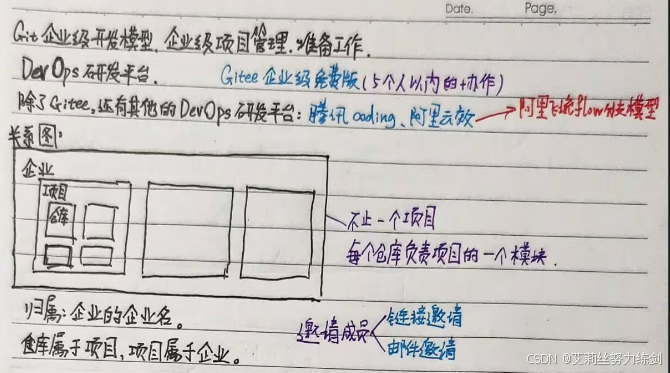 Date.　Page.
Git企业级开发模型，企业级项目管理，准备工作．
DevOps研发平台．　Gitee企业级免费版（5个人以内的+协作）
除了Gitee，还有其他的DevOps研发平台：腾讯coding、阿里云效→阿里飞流flow分支模型
关系图：
企业
项目
仓库
不止一个项目
每个仓库负责项目的一个模块．
归属：企业的企业名。
仓库属于项目，项目属于企业。
邀请成员
链接邀请
邮件邀请
CSDN @艾莉丝努力练剑